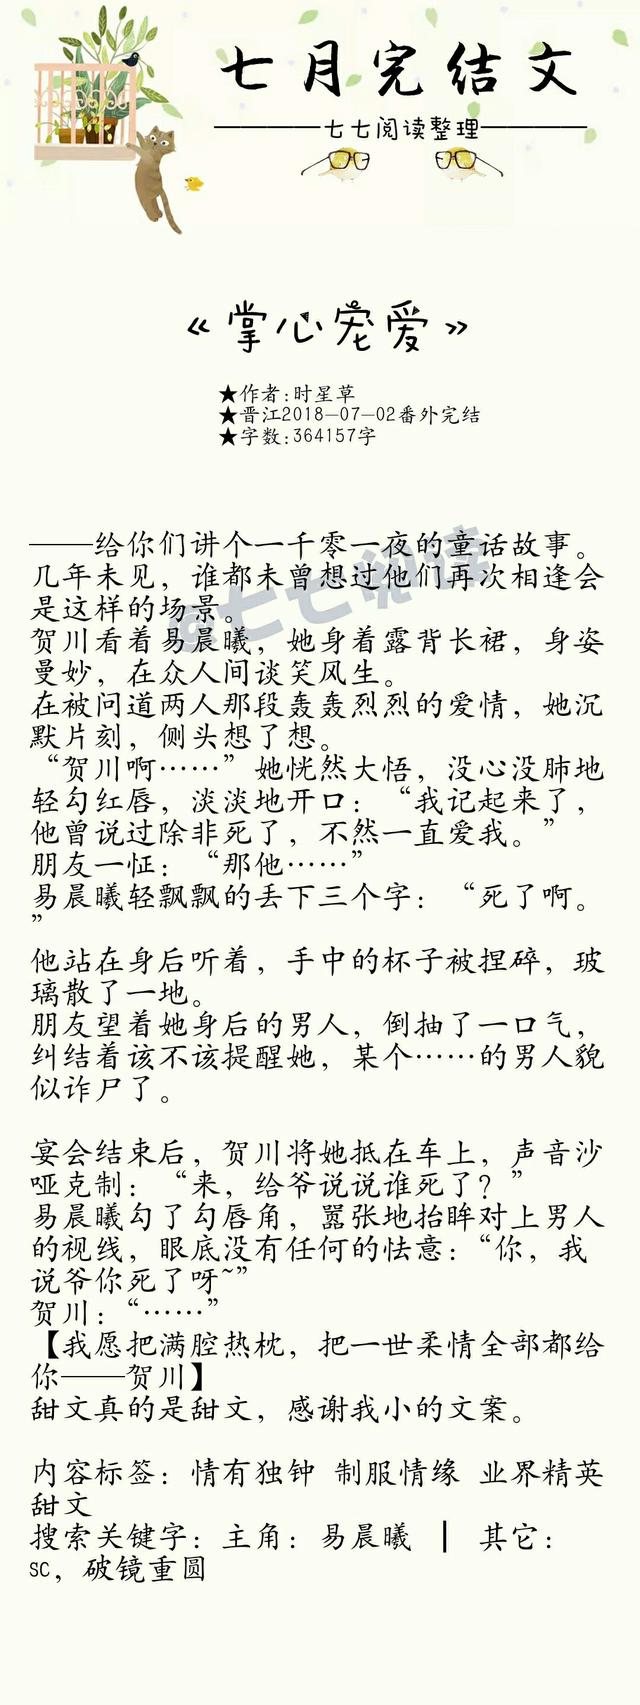 七月完结文
————七七阅读整理————
《掌心宠爱》
★作者:时星草
★晋江2018-07-02番外完结
★字数:364157字
@七七阅读
——给你们讲个一千零一夜的童话故事。
几年未见，谁都未曾想过他们再次相逢会
是这样的场景。
贺川看着易晨曦，她身着露背长裙，身姿
曼妙，在众人间谈笑风生。
在被问道两人那段轰轰烈烈的爱情，她沉
默片刻，侧头想了想。
“贺川啊……”她恍然大悟，没心没肺地
轻勾红唇，淡淡地开口：“我记起来了，
他曾说过除非死了，不然一直爱我。”
朋友一怔：“那他……”
易晨曦轻飘飘的丢下三个字：“死了啊。
”
他站在身后听着，手中的杯子被捏碎，玻
璃散了一地。
朋友望着她身后的男人，倒抽了一口气，
纠结着该不该提醒她，某个……的男人貌
似诈尸了。
宴会结束后，贺川将她抵在车上，声音沙
哑克制：“来，给爷说说谁死了？”
易晨曦勾了勾唇角，嚣张地抬眸对上男人
的视线，眼底没有任何的怯意：“你，我
说爷你死了呀~”
贺川：“……”
【我愿把满腔热枕，把一世柔情全部都给
你——贺川】
甜文真的是甜文，感谢我小的文案。
内容标签：情有独钟 制服情缘 业界精英
甜文
搜索关键字：主角：易晨曦 ┃ 其它：
sc，破镜重圆